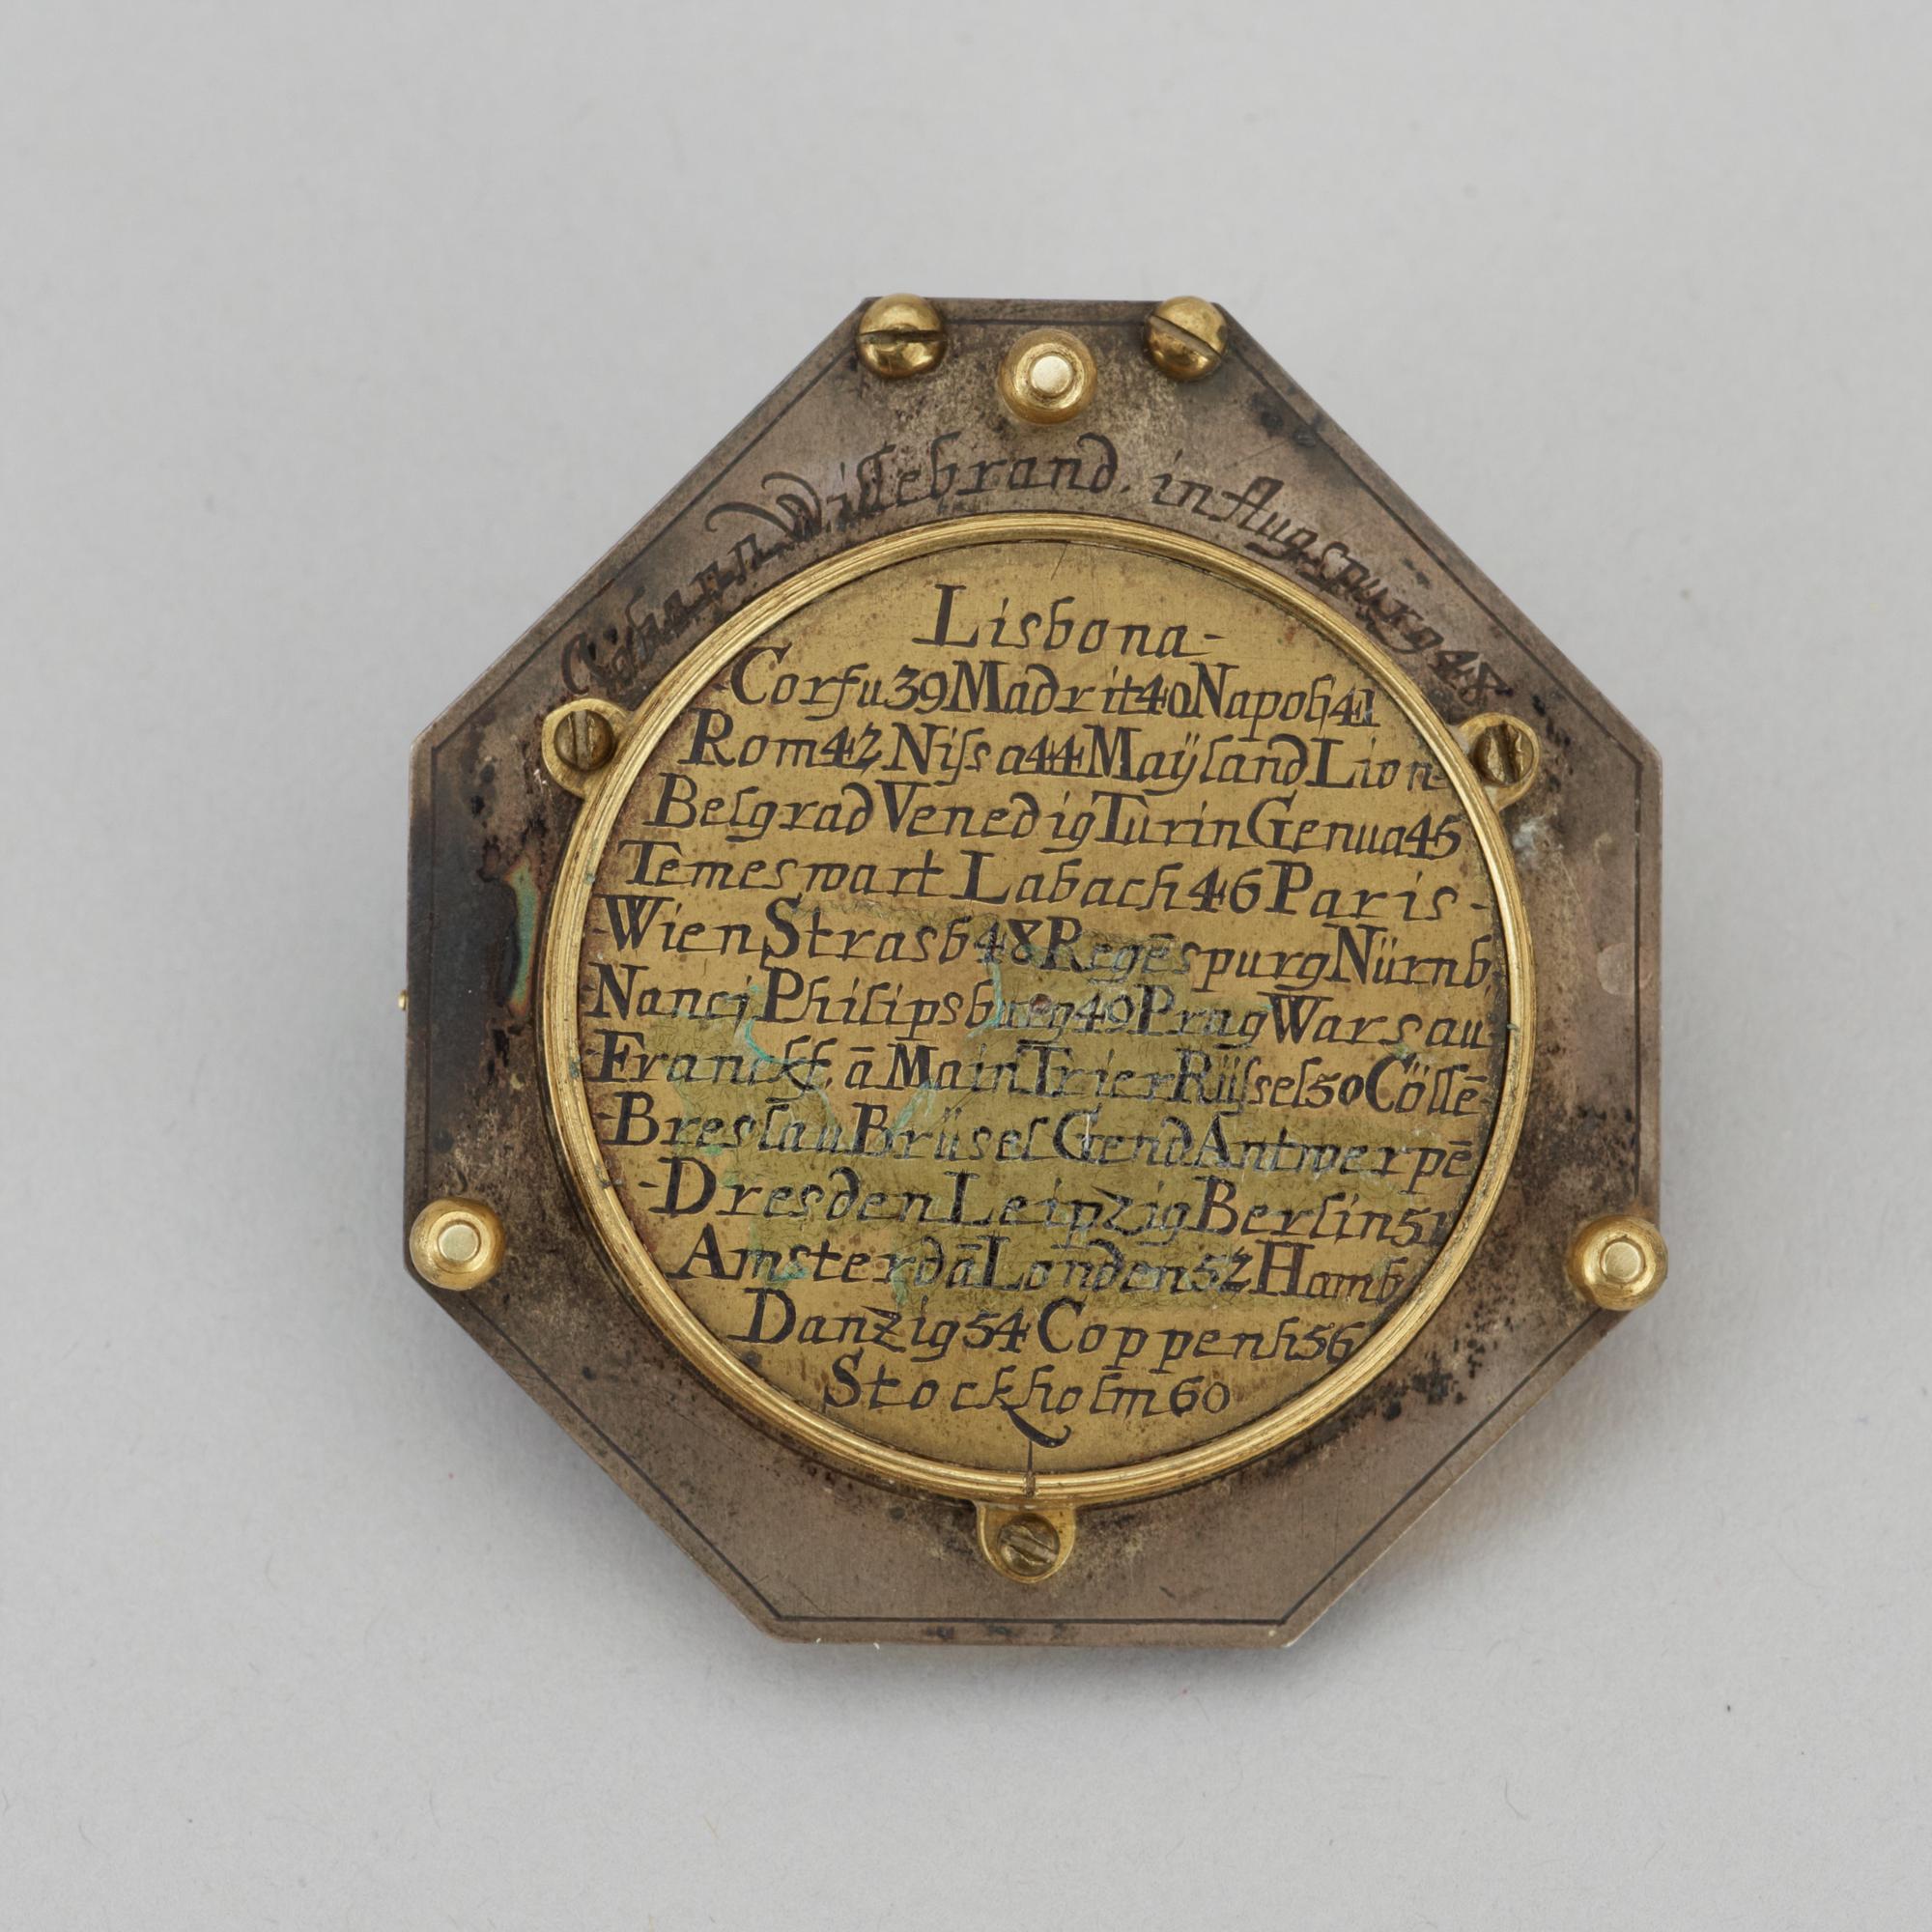 Johann Willebrand. in Augspurg 48
Lisbona-
-Corfu 39 Madrit 40 Napoli 41
Rom 42 Nissa 44 Maÿland Lion-
Belgrad Venedig Turin Genua 45
Temeswart Labach 46 Paris-
-Wien Strasb 48 Regēspurg Nürnb.
-Nanci Philipsburg 49 Prag Warsau
-Franckf. ā Main Trier Rüssel 50 Cöllē-
-Breslau Brüsel Gend Antwerpē
-Dresden Leipzig Berlin 51
Amsterdā London 52 Hamb
Danzig 54 Coppenh 56
Stockholm 60